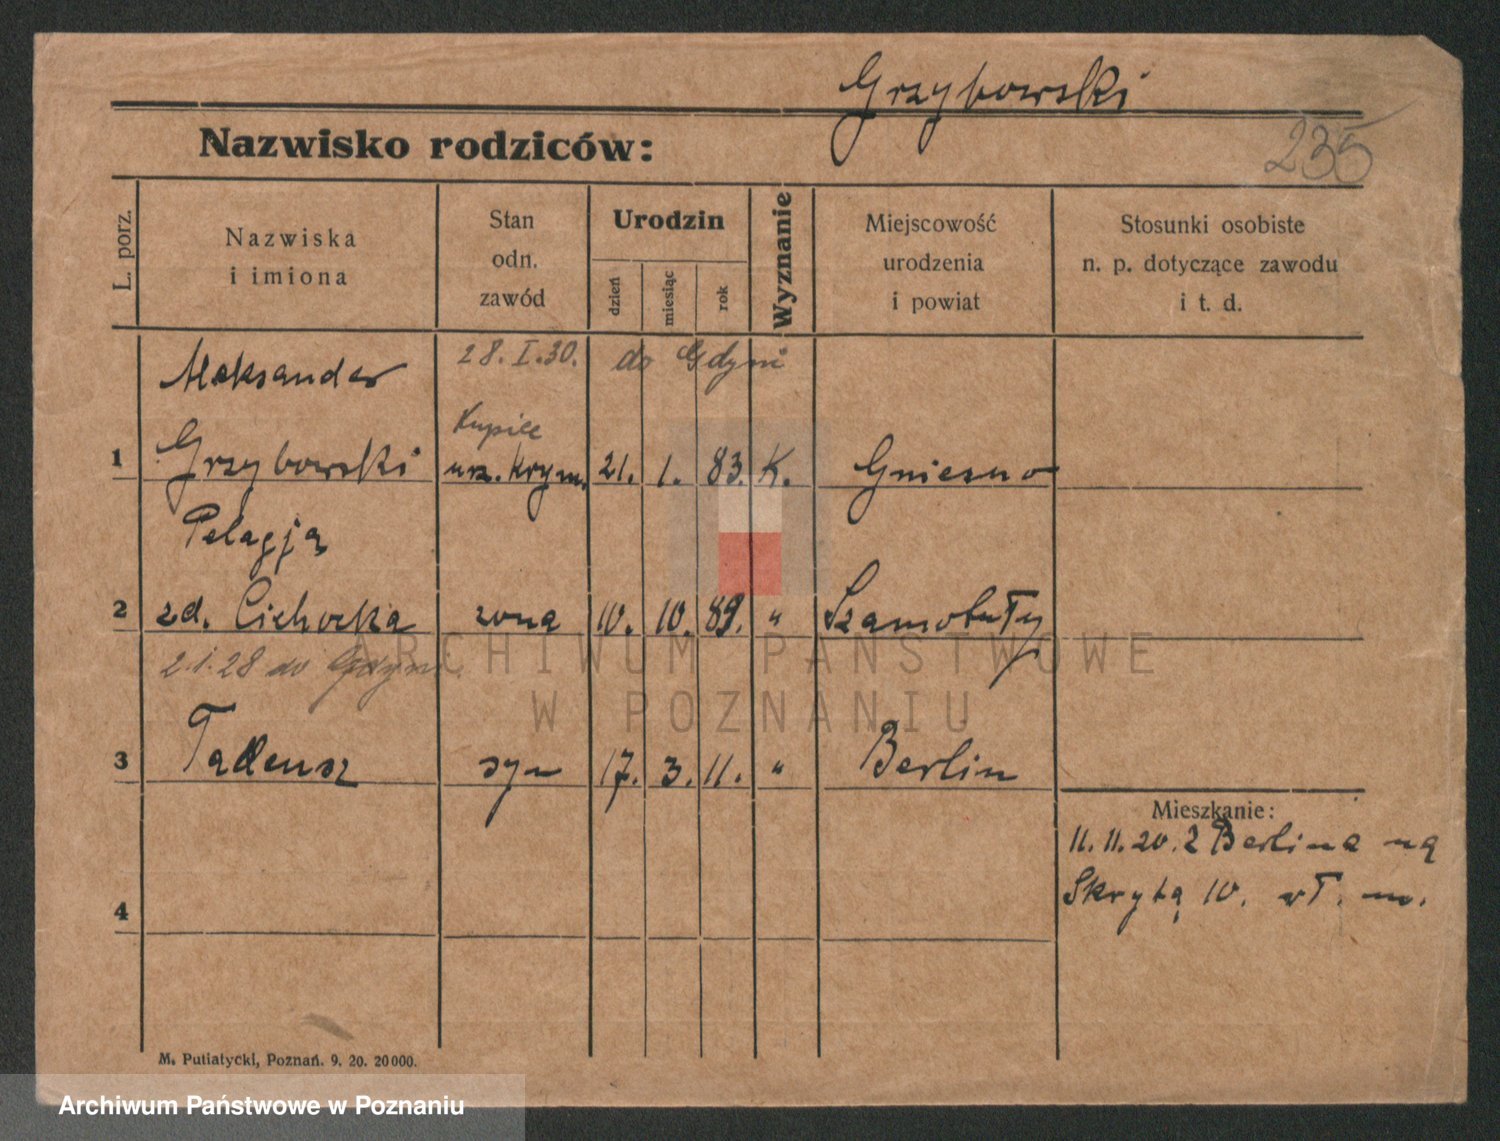 Grzybowski
Nazwisko rodziców:
235
L. porz.
Nazwiska
i imiona
Stan
odn.
zawód
Urodzin
dzień
miesiąc
rok
Wyznanie
Miejscowość
urodzenia
i powiat
Stosunki osobiste
n. p. dotyczące zawodu
i t. d.
28. I. 30. do Gdyni
Aleksander
Kupiec
1 Grzybowski urz. krym. 21. 1. 83. K. Gniezno
Pelagja
2 zd. Cichocka żona 10. 10. 89. " Szamotuły
2.1.28 do Gdyni.
3 Tadeusz syn 17. 3. 11. " Berlin
Mieszkanie:
11. 11. 20. z Berlina na
Skrytą 10. wł. m.
4
M. Putiatycki, Poznań. 9. 20. 20000.
ARCHIWUM PAŃSTWOWE
W POZNANIU
Archiwum Państwowe w Poznaniu